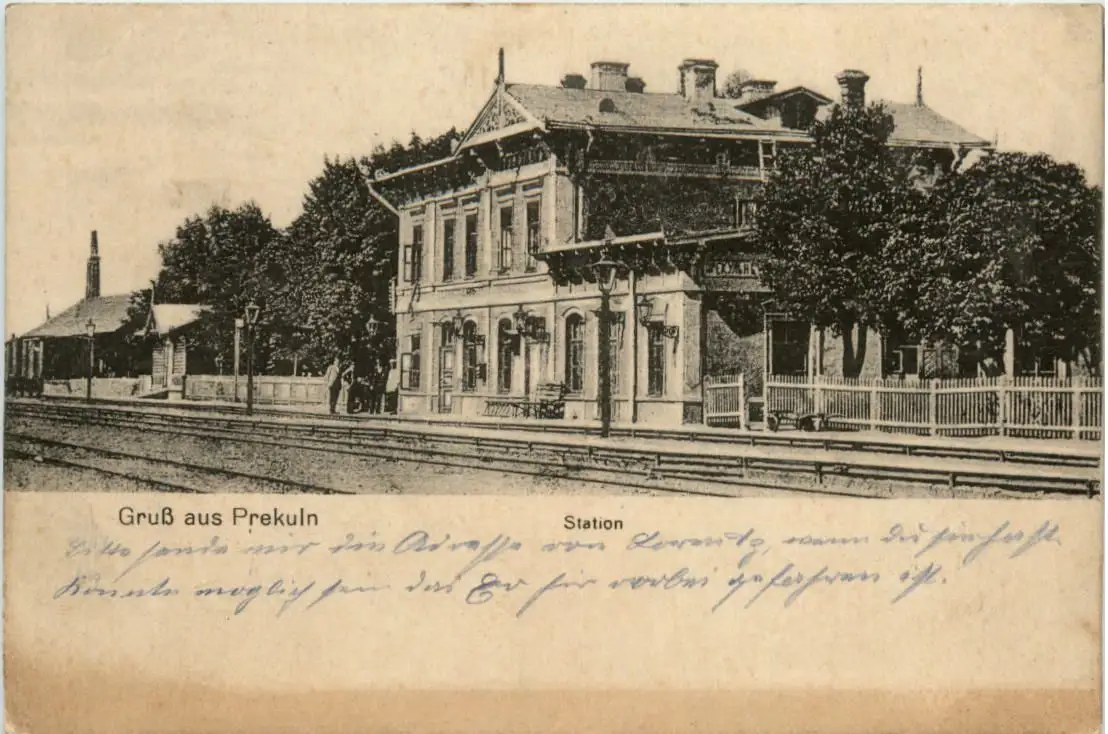 Gruß aus Prekuln
Station
Bitte sende mir die Adresse von wenn du sie hast.
Könnte möglich sein das Er hir vorbei gefahren ist.